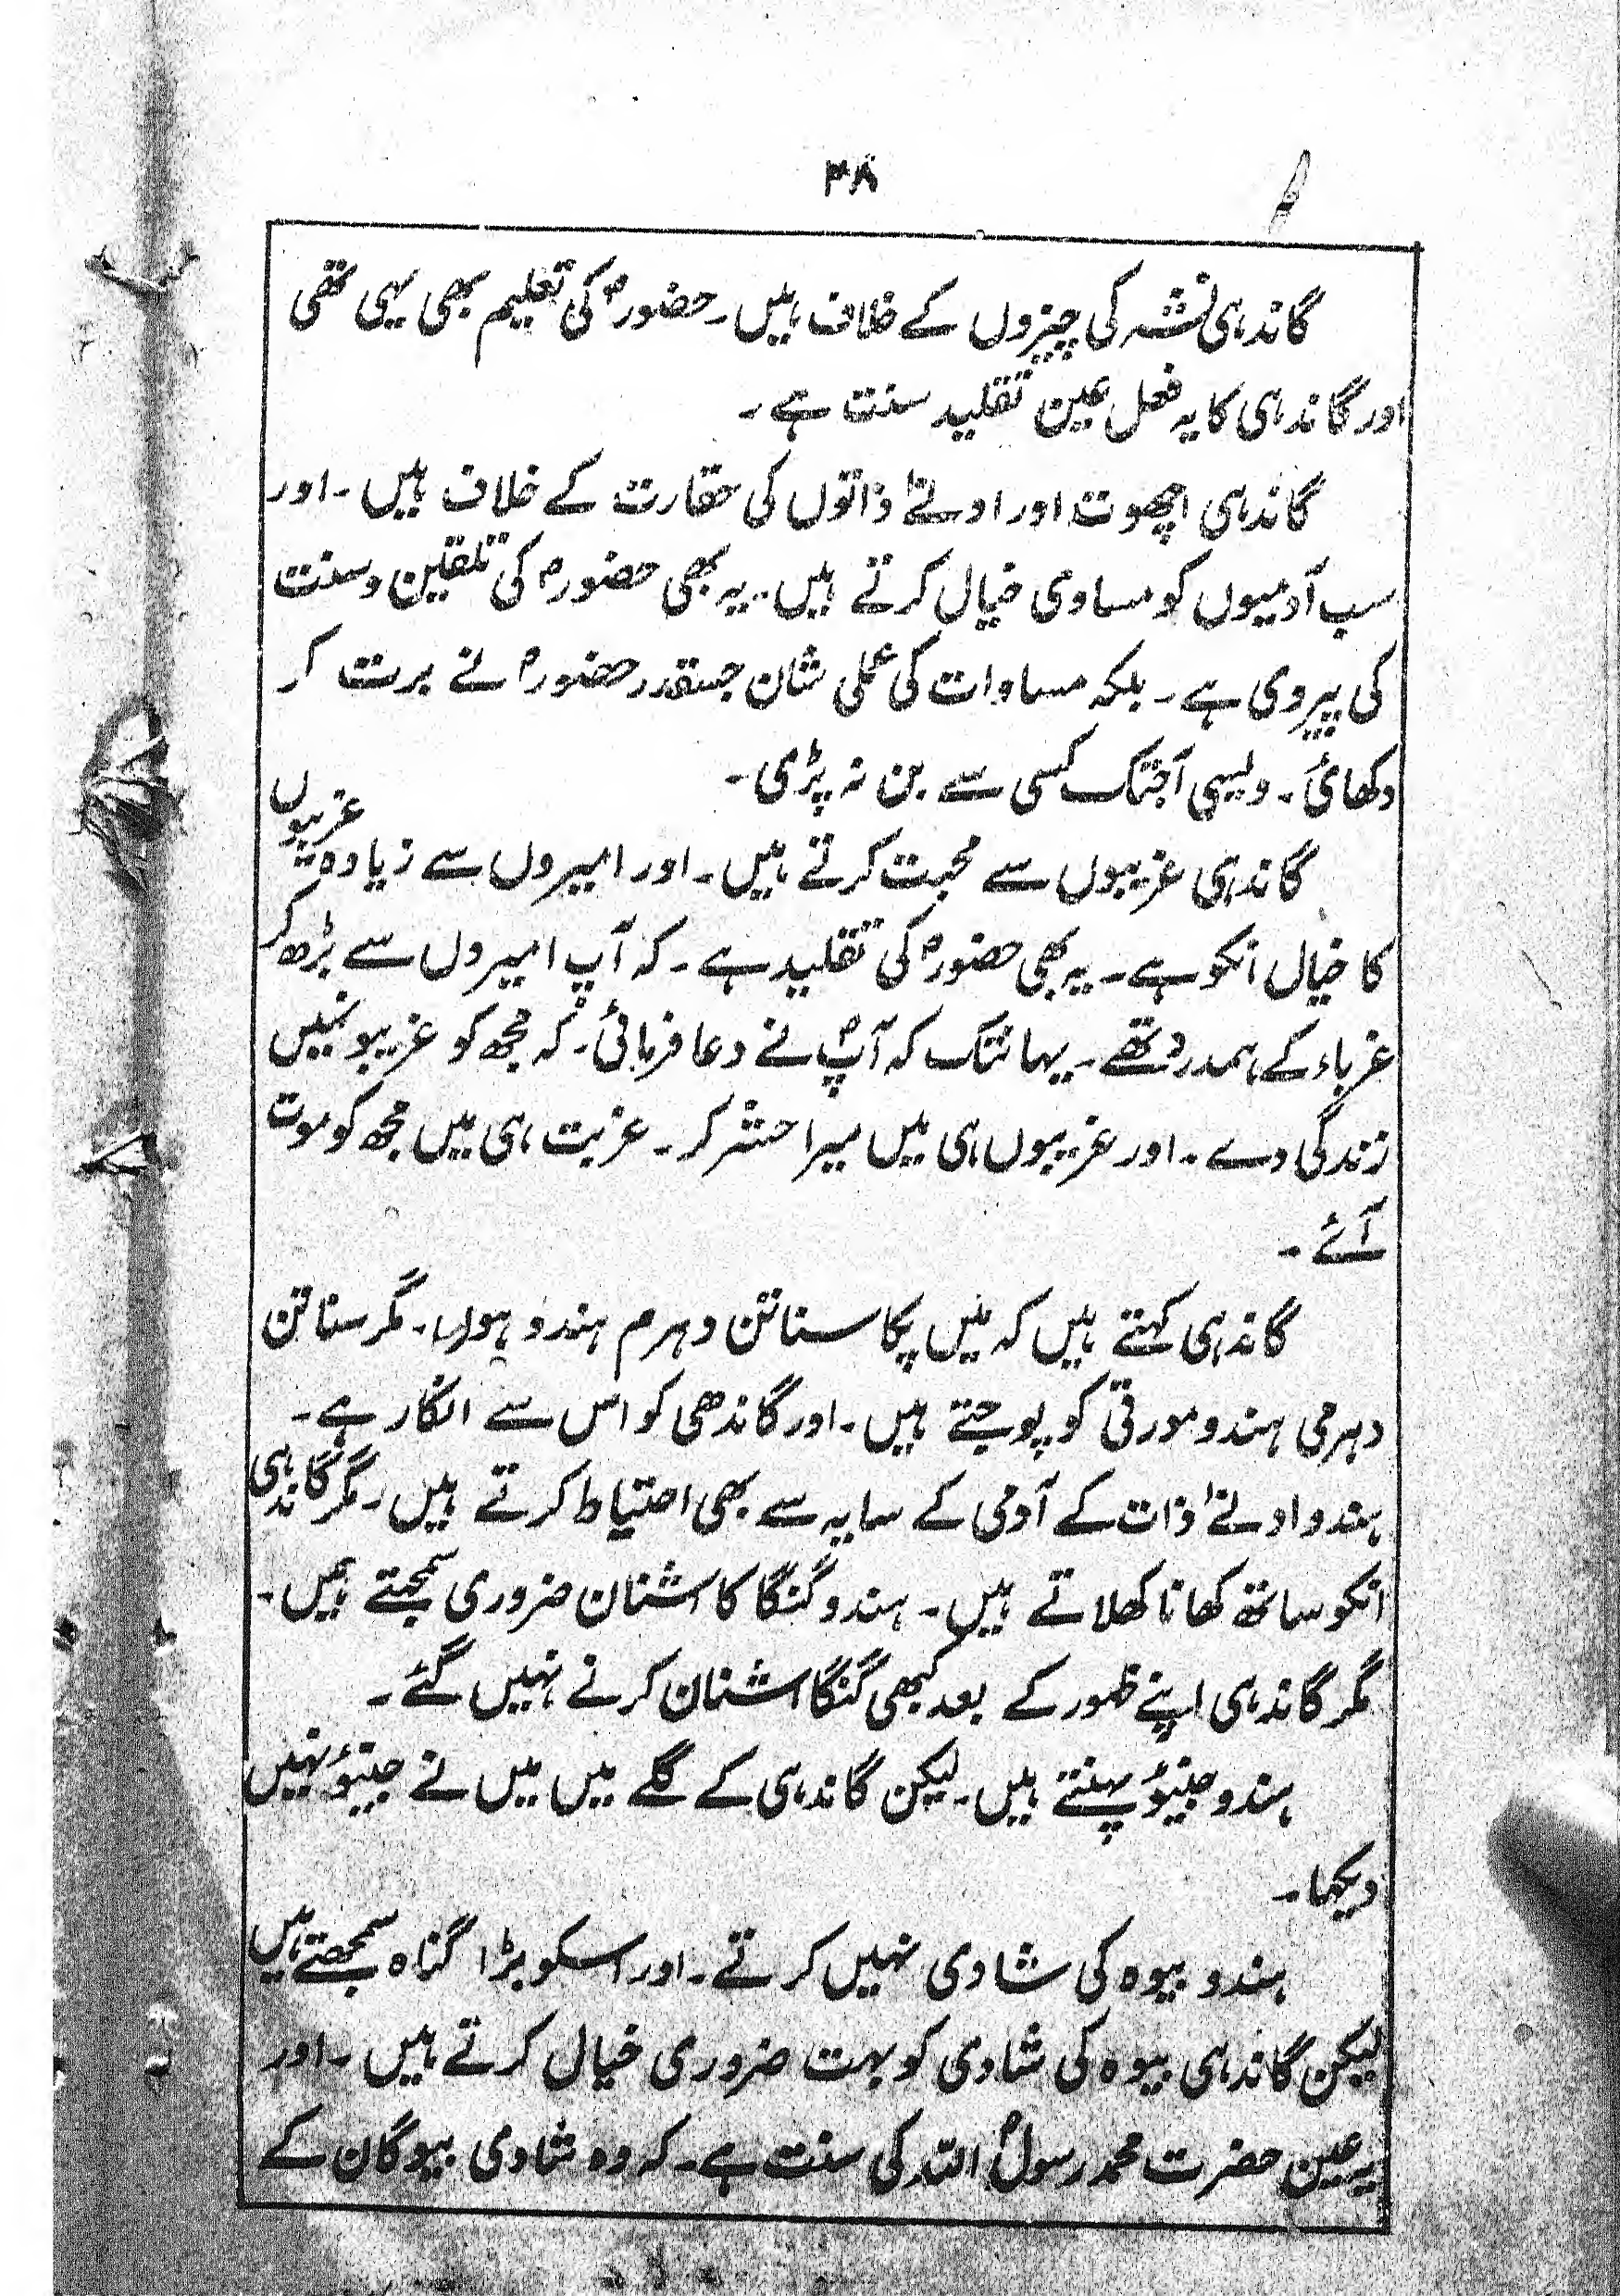 ۳۸
گاندہی نشہ کی چیزوں کے خلاف ہیں۔ حضورؐ کی تعلیم بھی یہی تھی
اور گاندہی کا یہ فعل عین تقلید سنت ہے۔
گاندہی اچھوت اور ادنےٰ ذاتوں کی حقارت کے خلاف ہیں۔ اور
سب آدمیوں کو مساوی خیال کرتے ہیں۔ یہ بھی حضورؐ کی تلقین و سنت
کی پیروی ہے۔ بلکہ مساوات کی عملی شان جسقدر حضورؐ نے برت کر
دکھائی۔ ویسی آجتک کسی سے بن نہ پڑی۔
گاندہی غریبوں سے محبت کرتے ہیں۔ اور امیروں سے زیادہ غریبوں
کا خیال انکو ہے۔ یہ بھی حضورؐ کی تقلید ہے۔ کہ آپ امیروں سے بڑھ کر
غرباء کے ہمدرد تھے۔ یہانتک کہ آپؐ نے دعا فرمائی۔ کہ مجھ کو غریبونمیں
زندگی دے۔ اور غریبوں ہی میں میرا حشر کر۔ غربت ہی میں مجھ کو موت
آئے۔
گاندہی کہتے ہیں کہ میں پکا سناتن دہرم ہندو ہوں۔ مگر سناتن
دہرمی ہندو مورتی کو پوجتے ہیں۔ اور گاندھی کو اس سے انکار ہے۔
ہندو ادنےٰ ذات کے آدمی کے سایہ سے بھی احتیاط کرتے ہیں۔ مگر گاندہی
انکو ساتھ کھانا کھلاتے ہیں۔ ہندو گنگا کا اشنان ضروری سمجہتے ہیں۔
مگر گاندہی اپنے ظہور کے بعد کبھی گنگا اشنان کرنے نہیں گئے۔
ہندو جینؤ پہنتے ہیں۔ لیکن گاندہی کے گلے میں میں نے جینؤ نہیں
دیکھا۔
ہندو بیوہ کی شادی نہیں کرتے۔ اور اسکو بڑا گناہ سمجھتے ہیں
لیکن گاندہی بیوہ کی شادی کو بہت ضروری خیال کرتے ہیں۔ اور
یہ عین حضرت محمد رسولؐ اللہ کی سنت ہے۔ کہ وہ شادی بیوگان کے